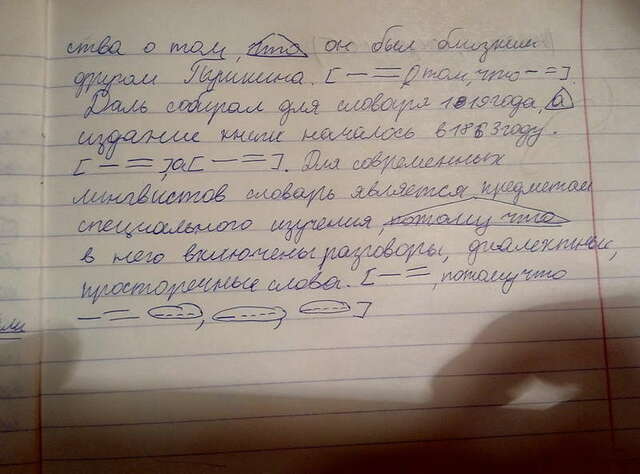 ства о том, что он был близким
другом Пушкина. [ — = , о том, что — = ].
Даль собирал для словаря 1819года, а
издание книги началось в 1863году.
[ — = ], а [ — = ]. Для современных
лингвистов словарь является предметом
специального изучения, потому что
в него включены разговоры, диалектные,
просторечные слова. [ — = , потому что
— = , , ]
ли